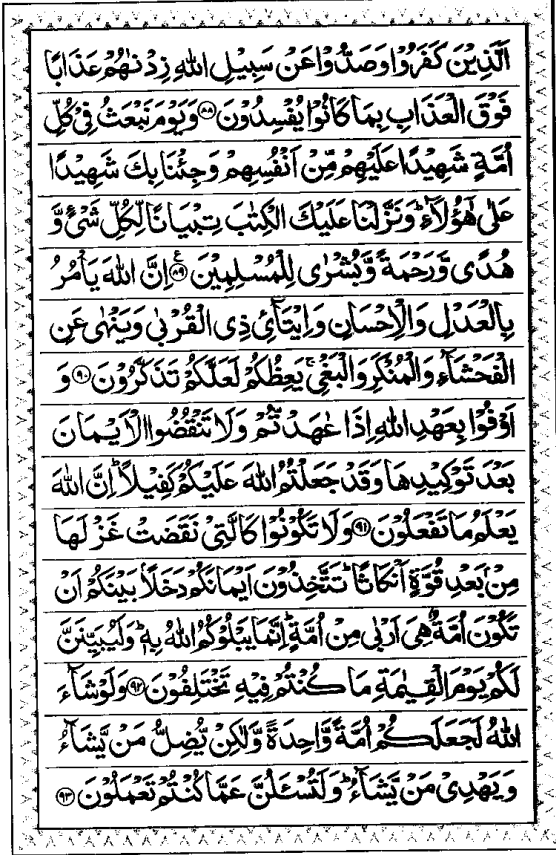 اَلَّذِيْنَ كَفَرُوْا وَصَدُّوْا عَنْ سَبِيْلِ اللّٰهِ زِدْنٰهُمْ عَذَابًا
فَوْقَ الْعَذَابِ بِمَا كَانُوْا يُفْسِدُوْنَ ۝۸۸ وَيَوْمَ نَبْعَثُ فِيْ كُلِّ
اُمَّةٍ شَهِيْدًا عَلَيْهِمْ مِّنْ اَنْفُسِهِمْ وَجِئْنَا بِكَ شَهِيْدًا
عَلٰى هٰٓؤُلَآءِ ؕ وَنَزَّلْنَا عَلَيْكَ الْكِتٰبَ تِبْيَانًا لِّكُلِّ شَيْءٍ وَّ
هُدًى وَّرَحْمَةً وَّبُشْرٰى لِلْمُسْلِمِيْنَ ۝۸۹ ع اِنَّ اللّٰهَ يَاْمُرُ
بِالْعَدْلِ وَالْاِحْسَانِ وَاِيْتَآئِ ذِي الْقُرْبٰى وَيَنْهٰى عَنِ
الْفَحْشَآءِ وَالْمُنْكَرِ وَالْبَغْيِ ۚ يَعِظُكُمْ لَعَلَّكُمْ تَذَكَّرُوْنَ ۝۹۰ وَ
اَوْفُوْا بِعَهْدِ اللّٰهِ اِذَا عٰهَدْتُّمْ وَلَا تَنْقُضُوا الْاَيْمَانَ
بَعْدَ تَوْكِيْدِهَا وَقَدْ جَعَلْتُمُ اللّٰهَ عَلَيْكُمْ كَفِيْلًا ؕ اِنَّ اللّٰهَ
يَعْلَمُ مَا تَفْعَلُوْنَ ۝۹۱ وَلَا تَكُوْنُوْا كَالَّتِيْ نَقَضَتْ غَزْلَهَا
مِنْۢ بَعْدِ قُوَّةٍ اَنْكَاثًا ؕ تَتَّخِذُوْنَ اَيْمَانَكُمْ دَخَلًاۢ بَيْنَكُمْ اَنْ
تَكُوْنَ اُمَّةٌ هِيَ اَرْبٰى مِنْ اُمَّةٍ ؕ اِنَّمَا يَبْلُوْكُمُ اللّٰهُ بِهٖ ؕ وَلَيُبَيِّنَنَّ
لَكُمْ يَوْمَ الْقِيٰمَةِ مَا كُنْتُمْ فِيْهِ تَخْتَلِفُوْنَ ۝۹۲ وَلَوْ شَآءَ
اللّٰهُ لَجَعَلَكُمْ اُمَّةً وَّاحِدَةً وَّلٰكِنْ يُّضِلُّ مَنْ يَّشَآءُ
وَيَهْدِيْ مَنْ يَّشَآءُ ؕ وَلَتُسْـَٔلُنَّ عَمَّا كُنْتُمْ تَعْمَلُوْنَ ۝۹۳